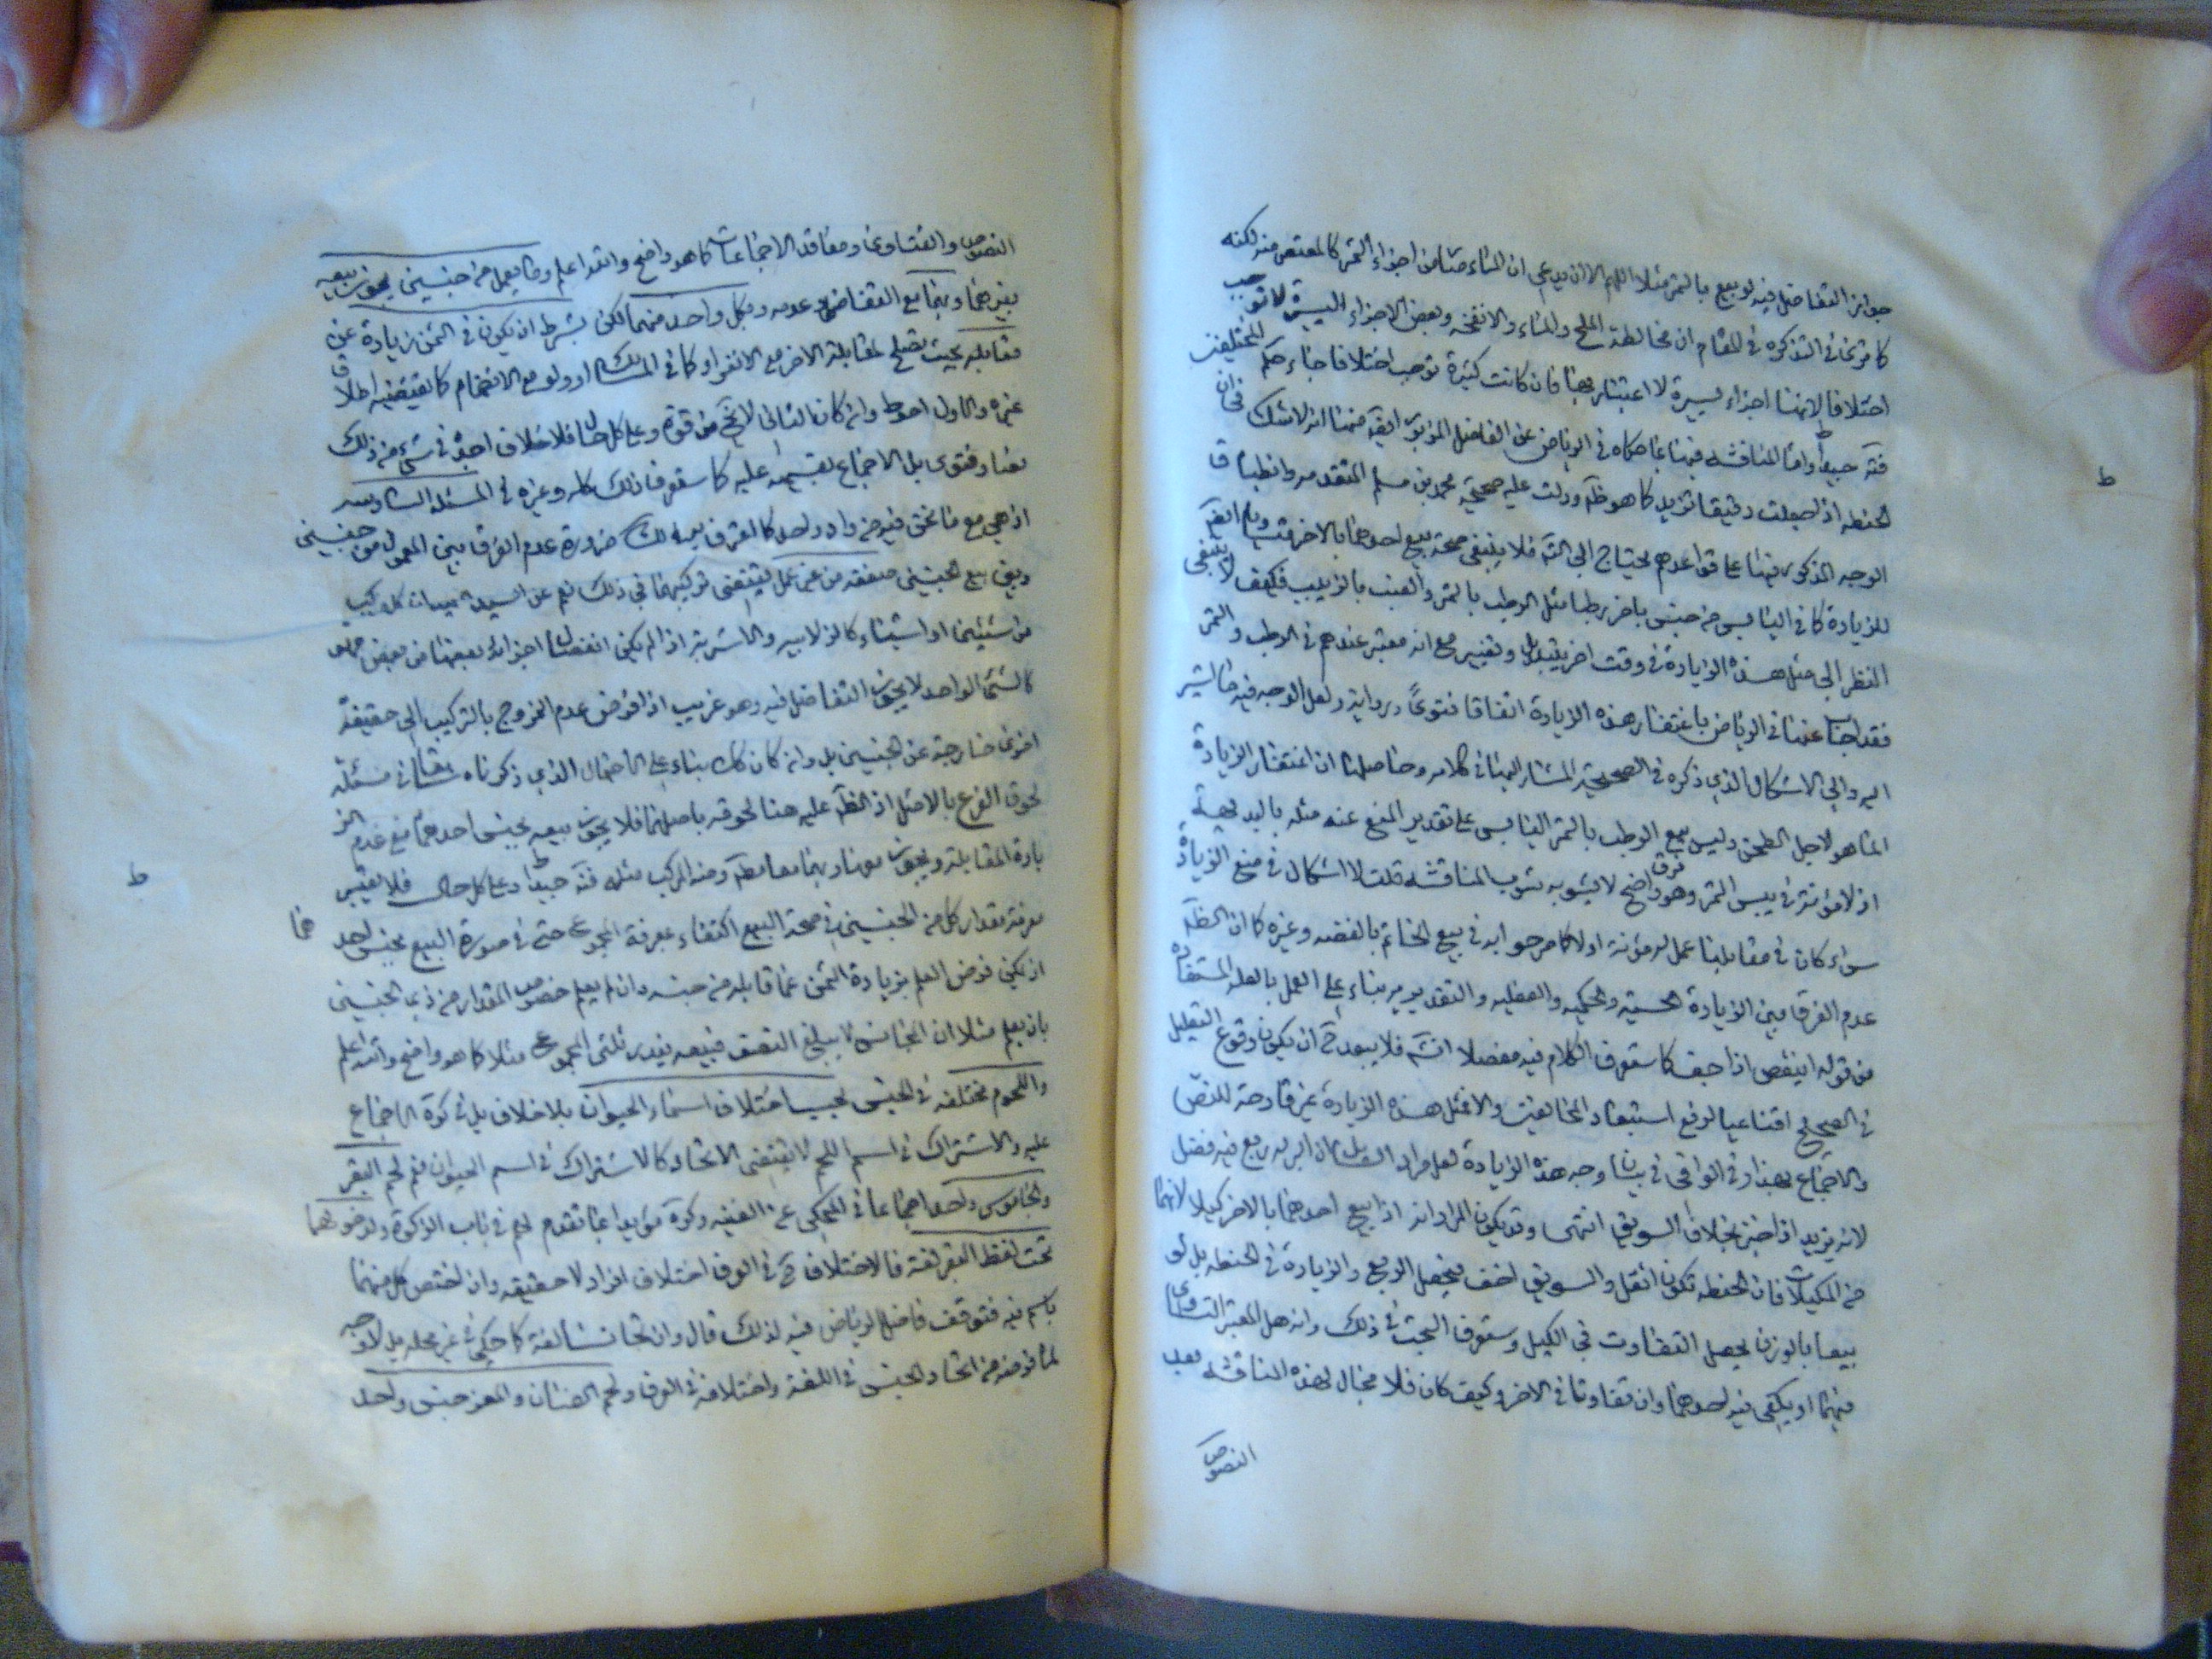 جواز التفاضل فيه لو بيع بالتمر مثلا اللهم الا ان يدعى ان الماء من اجزاء التمر كالمعتصر منه لكنه
كما ترى في التذكره في المقام ان مخالطة الملح والماء والانفخه وبعض الاجزاء اليسيرة لا توجب
اختلافا لانها اجزاء يسيرة لا اعتبار بها فان كانت كثيرة توجب اختلافا جاء حكم المختلفين
فتم جيدا واما المناقشه فيها بما حكاه في الرياض عن الفاضل المزبور ايضا منها انه لا شك في ان
الحنطه اذا جعلت دقيقا تزيد كما هو ظ ودلت عليه صحيحة محمد بن مسلم المتقدمه وانطباق
الوجه المذكور فيها على قواعدهم يحتاج الى التم فلا ينبغي صحة بيع احدهما بالاخر وقت ايض
للزيادة كما في اليابس من جنس باخر رطبا مثل الرطب بالتمر والعنب بالزبيب فكيف لا ينبغي
النظر الى مثل هذه الزيادة في وقت اخر بتبديل وتغيير مع انه معتبر عندهم في الرطب والتمر
فقد اجاب عنها في الرياض باغتفار هذه الزيادة اتفاقا فتوىً ورواية ولعل الوجه فيه ما اشير
اليه والى الاشكال الذي ذكره في الصحيحة المشار اليها في كلامه وحاصلها ان اغتفار الزيادة
انما هو لاجل الطحن وليس بيع الرطب بالتمر اليابس على تقدير المنع عنه مثله باليد بهه
اذ لا مؤنة في يبس التمر وهو فرق واضح لا يشوبه شوب المناقشه قلت لا اشكال في منع الزيادة
سواء كان في مقابلها عمل له مؤنة اولا كما مر جوابه في بيع الخاتم بالفضه وغيره كما ان الظ
عدم الفرق بين الزيادة الحسية والحكميه والفعليه والتقديريه بناء على العمل بالعله المستفادة
من قوله اينقص اذا جف كما ستعرف الكلام فيه مفصلا انش فلا يبعد ح ان يكون وقوع التعليل
في الصحيح اقناعيا لرفع استبعاد المخالفين والا فمثل هذه الزيادة غير قادحة للنص
والاجماع بهذا وفي الوافي في بيان وجه هذه الزيادة لعل مراد السائل ان البر له ريع فيه فضل
لانه يزيد اذا خبز بخلاف السويق انتهى وقد يكون المراد انه اذا بيع احدهما بالاخر كيلا لانهما
من المكيلات فان الحنطه تكون اثقل والسويق اخف فيحصل الريع والزيادة في الحنطه بل لو
بيعا بالوزن يحصل التفاوت في الكيل وستعرف البحث في ذلك وانه هل المعتبر التساوي
فيهما او يكفي فيه احدهما وان تفاوتا في الاخر وكيف كان فلا مجال لهذه المناقشه بعد
النصوص
النصوص والفتاوى ومعاقد الاجماعات كما هو واضح والله اعلم وما يعمل من جنسين يجوز بيعه
بغيرهما وبهما مع التفاضل وعدمه وبكل واحد منهما لكن بشرط ان يكون في الثمن زيادة عن
مقابله بحيث تصلح لمقابلة الاخر مع الانفراد كما في المسالك او ولو مع الانضمام كما يقتضيه اطلاق
غيره والاول احوط وان كان الثاني لا يخ من قوة وعلى كل حال فلا خلاف اجده في شئ من ذلك
نصا وفتوى بل الاجماع بقسميه عليه كما ستعرف ذلك كله وغيره في المسئلة السادسه
اذ هي مع ما نحن فيه من واد واحد كما اعترف به لك ضرورة عدم الفرق بين المعمول من جنسين
وبين بيع الجنسين صفقه من غير عمل يقتضي تركيبهما في ذلك نعم عن السيد عميد ان كل مركب
من شيئين او اشياء كالزلابيه والاشربة اذا لم يكن انفصال اجزائه بعضها من بعض
كالشئ الواحد لا يجوز التفاضل فيه وهو غريب اذا فرض عدم الخروج بالتركيب الى حقيقة
اخرى خارجة عن الجنسين بل وان كان كك بناء على الاحتمال الذي ذكرناه سابقا في مسئلة
لحوق الفرع بالاصل اذ الظ عليه هنا لحوقه باصلهما فلا يجوز بيعه بجنس احدهما مع عدم الز
يادة المقابلة ويجوز بهما معا مط ومنه المركب مثله فتم جيدا وعلى كل حال فلا يعتبر
معرفة مقدار كل من الجنسين في صحة البيع اكتفاء بمعرفة المجموع حتى في صورة البيع بجنس احد
هما
اذ يكفي فرض العلم بزيادة الثمن عما قابله من جنسه وان لم يعلم خصوص المقدار من ذي الجنسين
بان يعلم مثلا ان المجانس لا يبلغ النصف فيبيعه بقدر ثلثي المجموع مثلا كما هو واضح والله اعلم
واللحوم مختلفه في الجنس بحسب اختلاف اسماء الحيوان بلا خلاف بل في كرة الاجماع
عليه والاشتراك في اسم اللحم لا يقتضي الاتحاد كالاشتراك في اسم الحيوان نعم لحم البقر
والجاموس واحد اجماعا في المحكي عن الغنيه وكرة مؤيدا بما تقدم لهم في باب الزكوة ولدخولهما
تحت لفظ البقر لغة فالاختلاف ح في العرف اختلاف افراد لا حقيقه وان اختص كل منهما
باسم فيه فتوقف فاضل الرياض فيه لذلك قال وان تجانسا لغة كما حكي في غير محله بل لا وجه
لما فرضه من اتحاد الجنس في اللغة واختلافه في العرف ولحم الضان والمعز جنس واحد